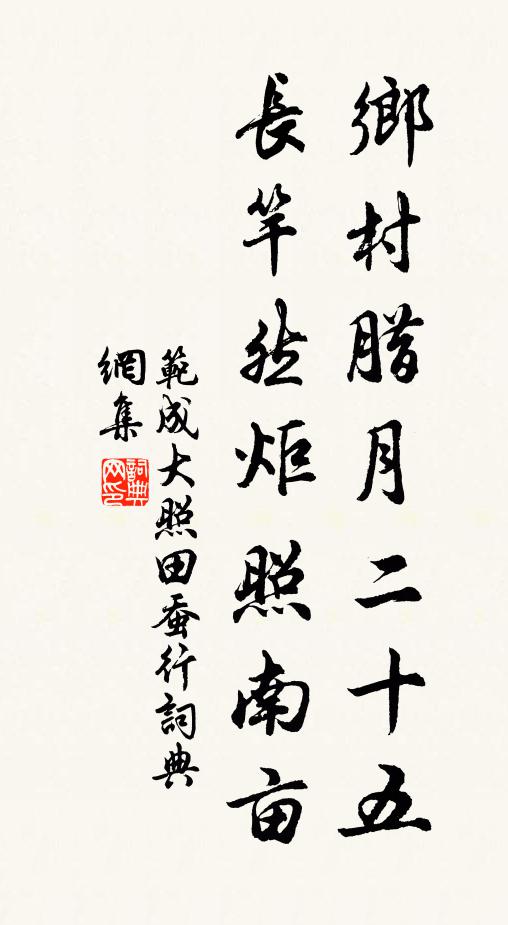 鄉村腊月二十五
長竿然炬照南亩
範成大照田蚕行詞典
網集
詞典
网印